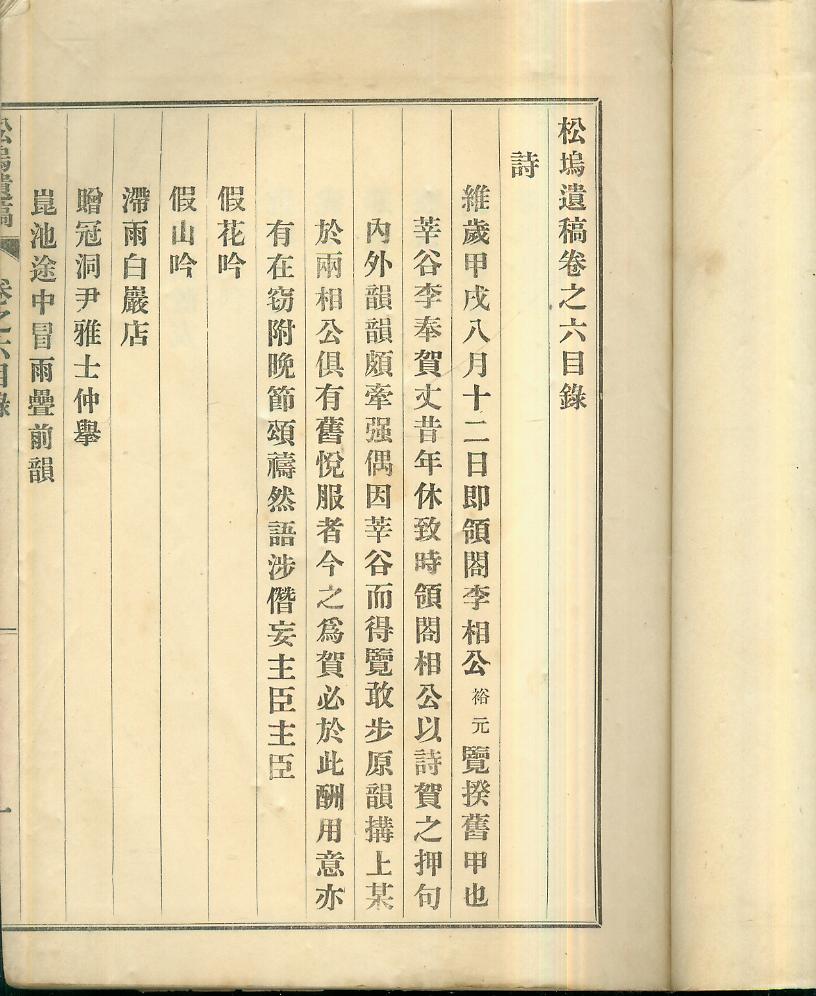 松塢遺稿卷之六目錄
詩
維歲甲戌八月十二日即領閤李相公裕元覽揆舊甲也
莘谷李奉賀丈昔年休致時領閤相公以詩賀之押句
內外韻韻頗牽强偶因莘谷而得覽敢步原韻搆上某
於兩相公俱有舊悅服者今之爲賀必於此酬用意亦
有在窃附晚節頌禱然語涉僭妄主臣主臣
假花吟
假山吟
滯雨白巖店
贈冠洞尹雅士仲擧
崑池途中冒雨疊前韻
松塢遺稿 卷之六目錄 一